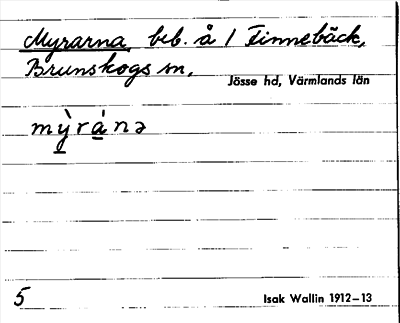 Myrarna beb. å 1 Finnebäck,
Brunskogs sn,
Jösse hd, Värmlands län
mỳ̱rà̱nə
5
Isak Wallin 1912–13